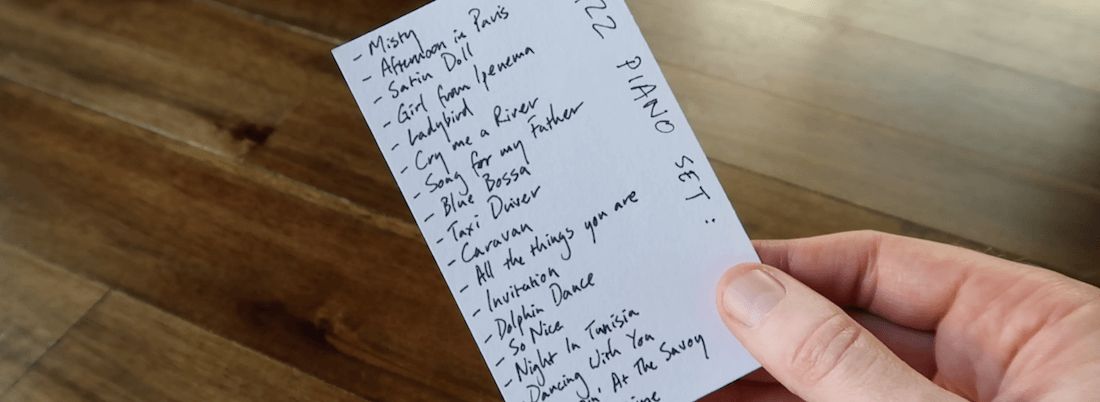 - Misty
- Afternoon in Paris
- Satin Doll
- Girl from Ipenema
- Ladybird
- Cry me a River
- Song for my Father
- Blue Bossa
- Taxi Driver
- Caravan
- All the things you are
- Invitation
- Dolphin Dance
- So Nice
- Night In Tunisia
- Dancing With You
At The Savoy
22 PIANO SET: